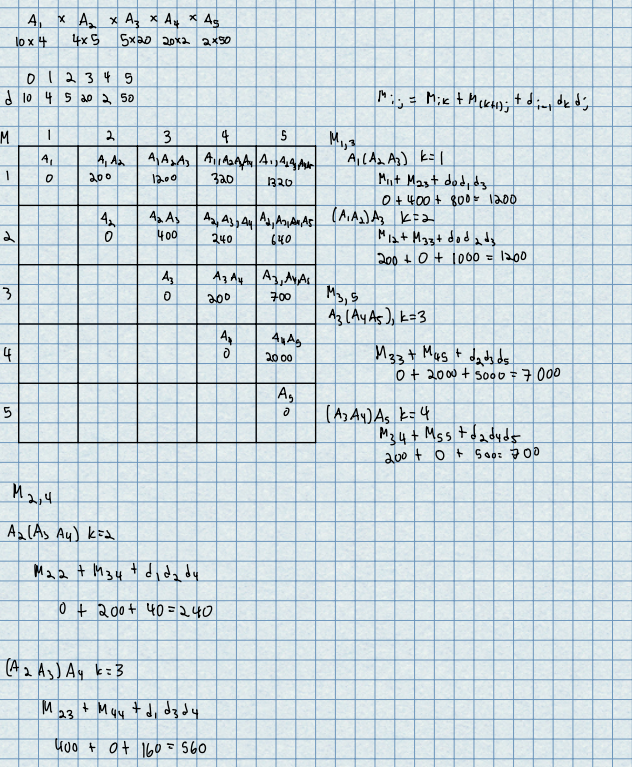 A₁ × A₂ × A₃ × A₄ × A₅
10×4 4×5 5×20 20×2 2×50
0 1 2 3 4 5
d 10 4 5 20 2 50
Mᵢⱼ = Mᵢₖ + M₍ₖ₊₁₎ⱼ + dᵢ₋₁ dₖ dⱼ
M 1 2 3 4 5
1
A₁ A₁A₂ A₁A₂A₃ A₁,A₂A₃A₄
0 200 1200 320 1320
2
A₂ A₂A₃ A₂,A₃,A₄ A₂,A₃,A₄,A₅
0 400 240 640
3
A₃ A₃A₄ A₃,A₄,A₅
0 200 700
4
A₄ A₄A₅
0 2000
5
A₅
0
M₁,₃
A₁(A₂A₃) k=1
M₁₁ + M₂₃ + d₀d₁d₃
0 + 400 + 800 = 1200
(A₁A₂)A₃ k=2
M₁₂ + M₃₃ + d₀d₂d₃
200 + 0 + 1000 = 1200
M₃,₅
A₃(A₄A₅), k=3
M₃₃ + M₄₅ + d₂d₃d₅
0 + 2000 + 5000 = 7000
(A₃A₄)A₅ k=4
M₃₄ + M₅₅ + d₂d₄d₅
200 + 0 + 500 = 700
M₂,₄
A₂(A₃A₄) k=2
M₂₂ + M₃₄ + d₁d₂d₄
0 + 200 + 40 = 240
(A₂A₃)A₄ k=3
M₂₃ + M₄₄ + d₁d₃d₄
400 + 0 + 160 = 560